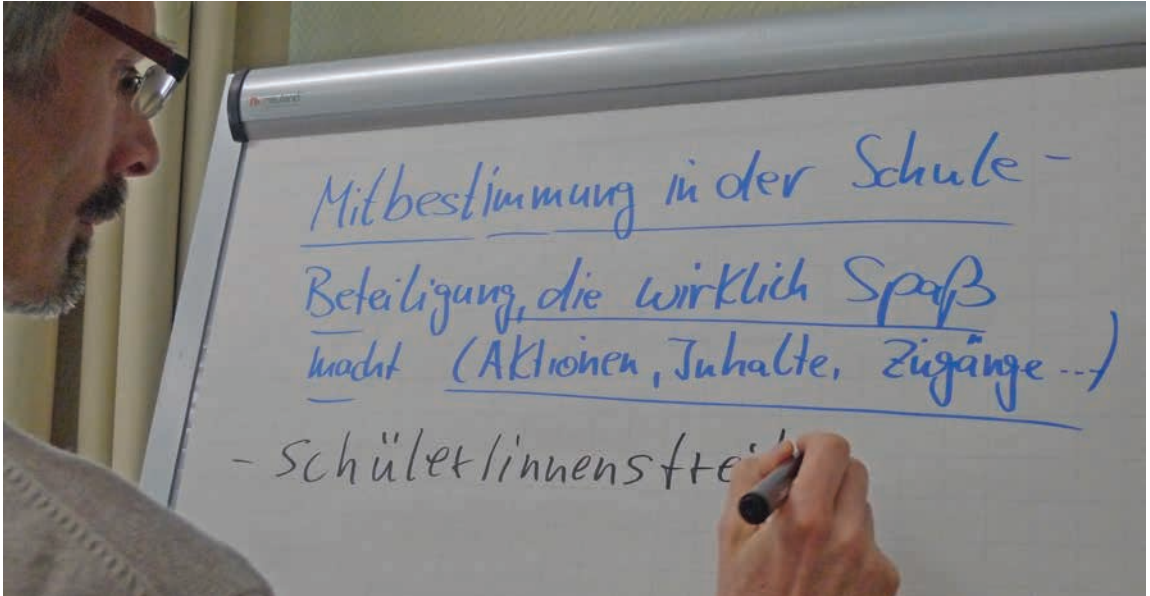 neuland
Mitbestimmung in der Schule -
Beteiligung, die wirklich Spaß
macht (Aktionen, Inhalte, Zugänge ...)
- Schüler/innenstrei